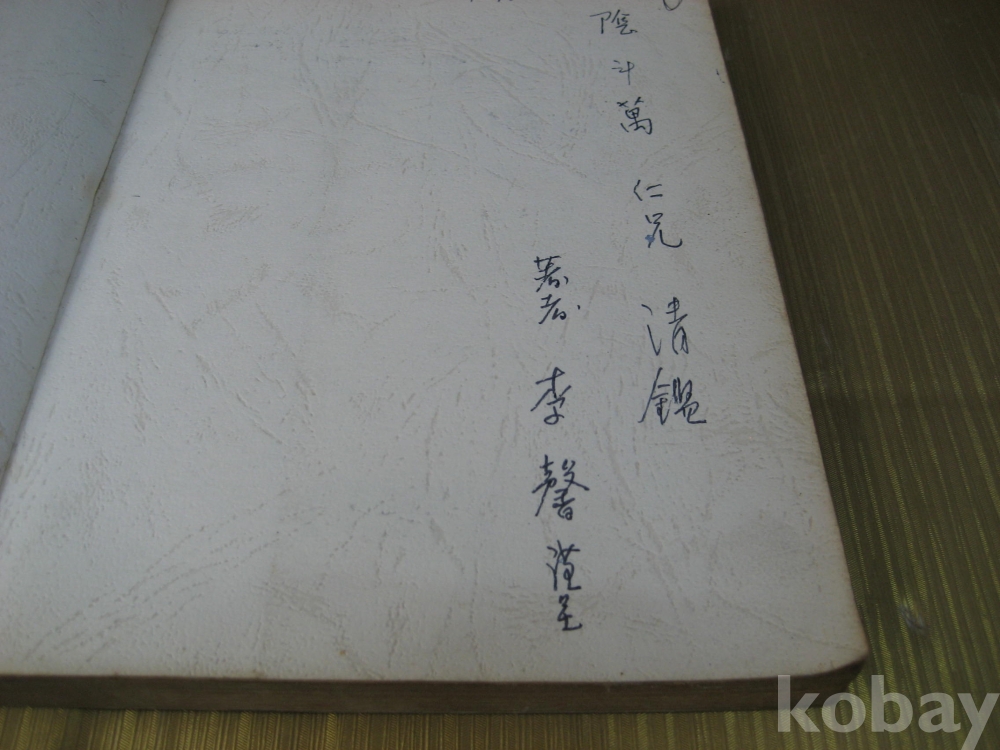 陰斗萬 仁兄 清鑑
著者 李馨 謹呈
kobay